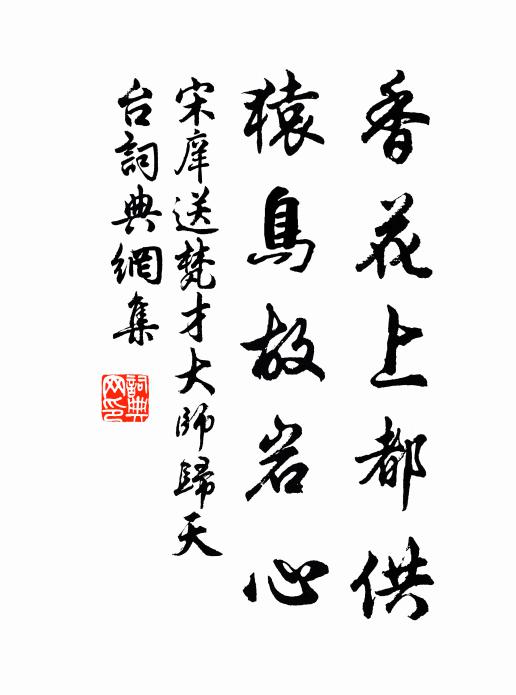 香花上都供
猿鳥故岩心
宋庠送梵才大師歸天
台詞典網集
詞典網印